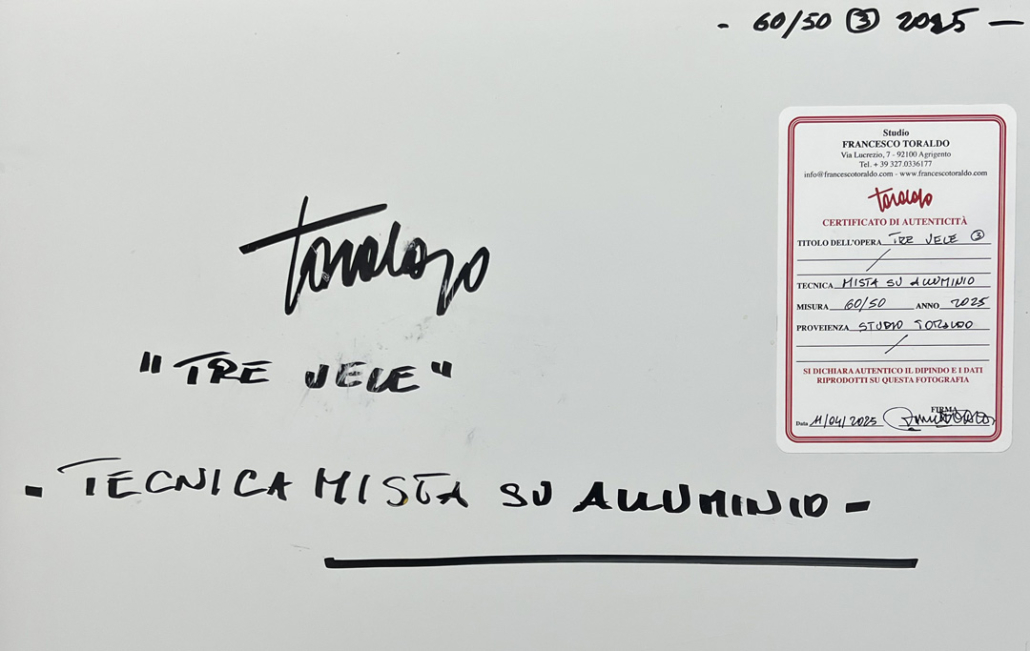 - 60/50 ③ 2025 -
Toraldo
"TRE VELE"
- TECNICA MISTA SU ALLUMINIO -
Studio
FRANCESCO TORALDO
Via Lucrezio, 7 - 92100 Agrigento
Tel. + 39 327.0336177
info@francescotoraldo.com - www.francescotoraldo.com
Toraldo
CERTIFICATO DI AUTENTICITÀ
TITOLO DELL'OPERA TRE VELE ③
TECNICA MISTA SU ALLUMINIO
MISURA 60/50 ANNO 2025
PROVEIENZA STUDIO TORALDO
SI DICHIARA AUTENTICO IL DIPINDO E I DATI
RIPRODOTTI SU QUESTA FOTOGRAFIA
FIRMA
Data 11/04/2025